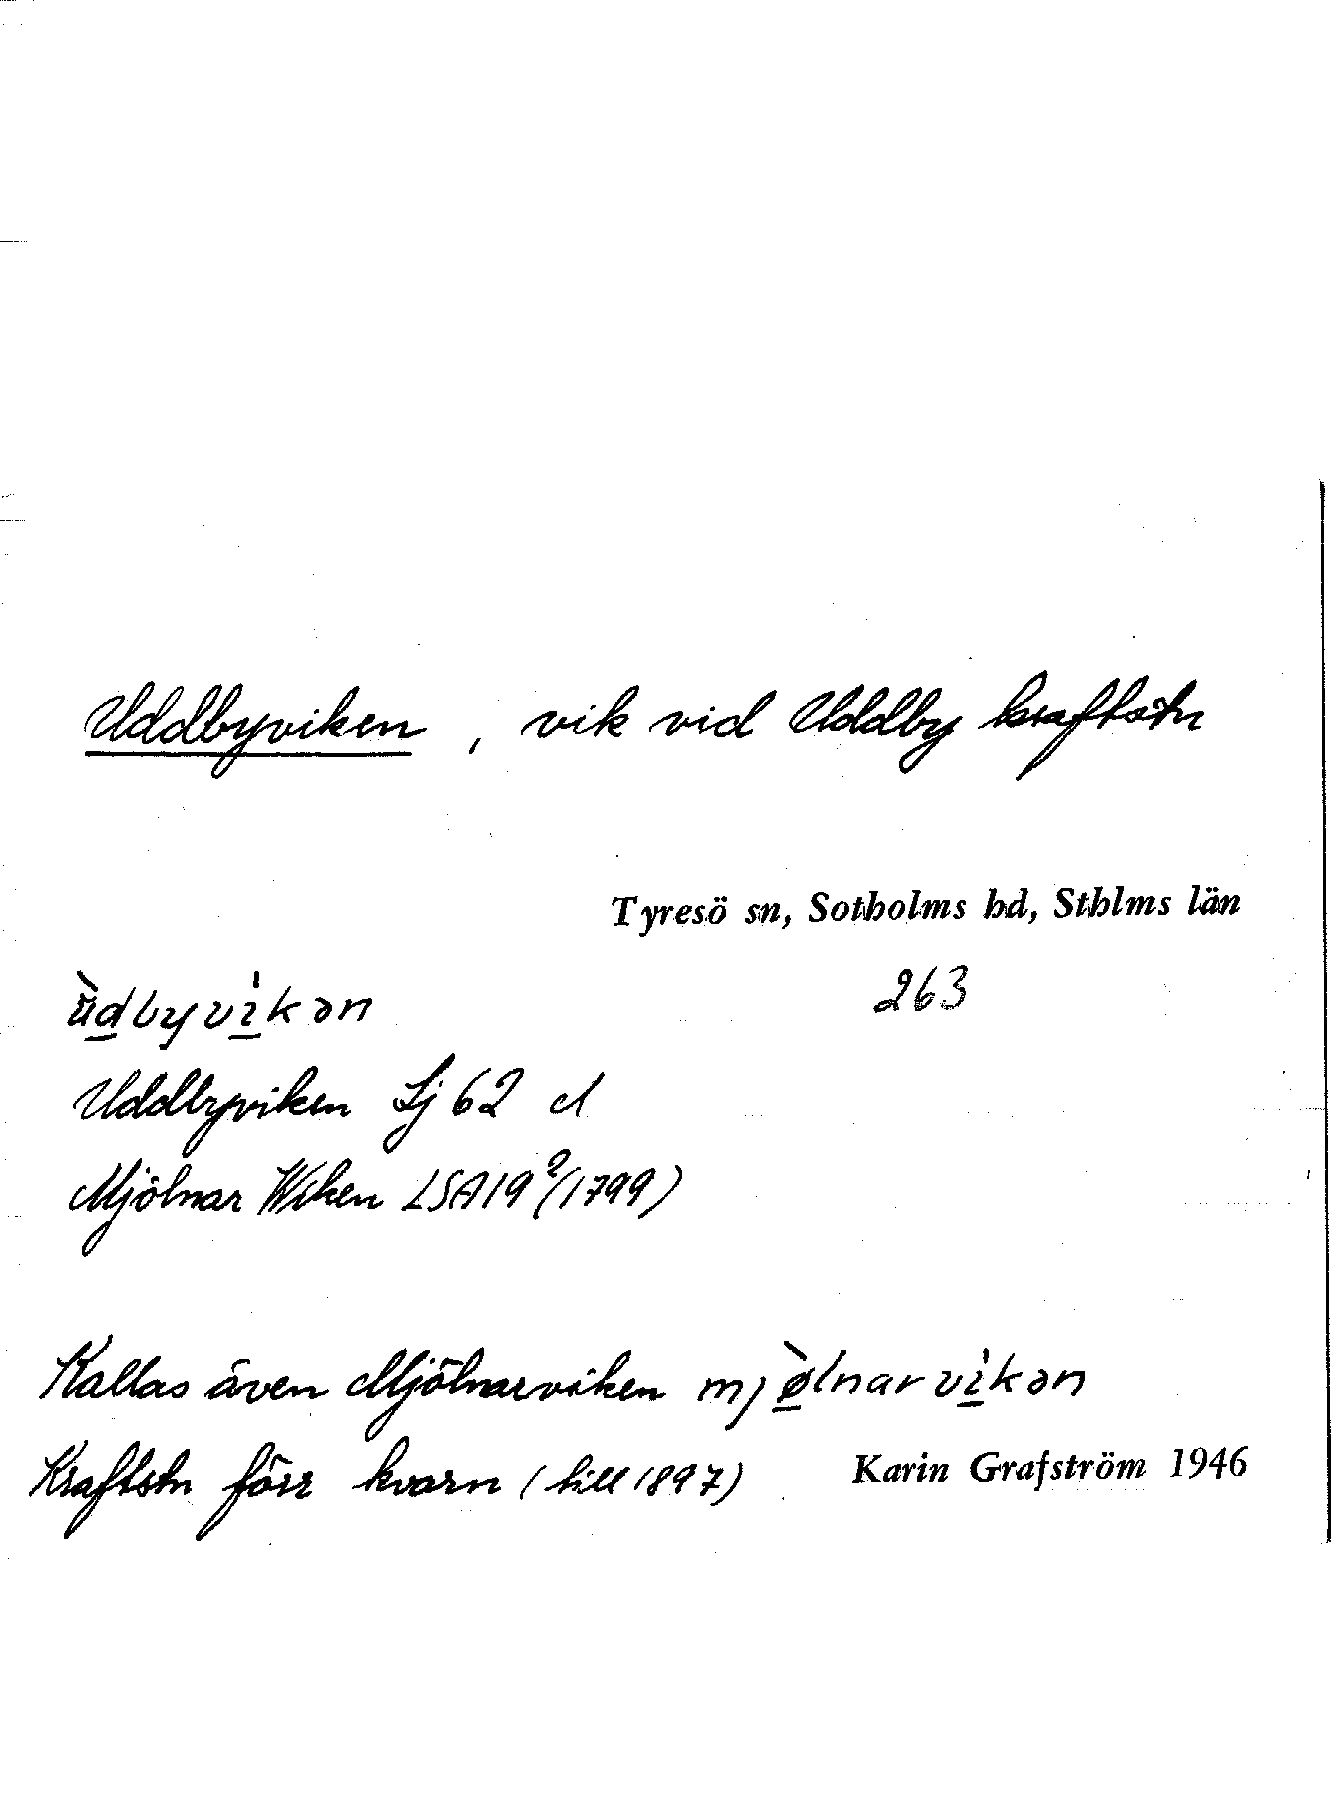 Uddbyviken, vik vid Uddby kraftstn
Tyresö sn, Sotholms hd, Sthlms län
ùdbyvìkən 263
Uddbyviken Sj 62 d
Mjölnar Wiken LSA 19²(1799)
Kallas även Mjölnarviken mjø̀lnarvìkən
Kraftstn förr kvarn (till 1897) Karin Grafström 1946